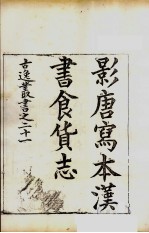 影唐寫本漢
書食貨志
古逸叢書之二十一